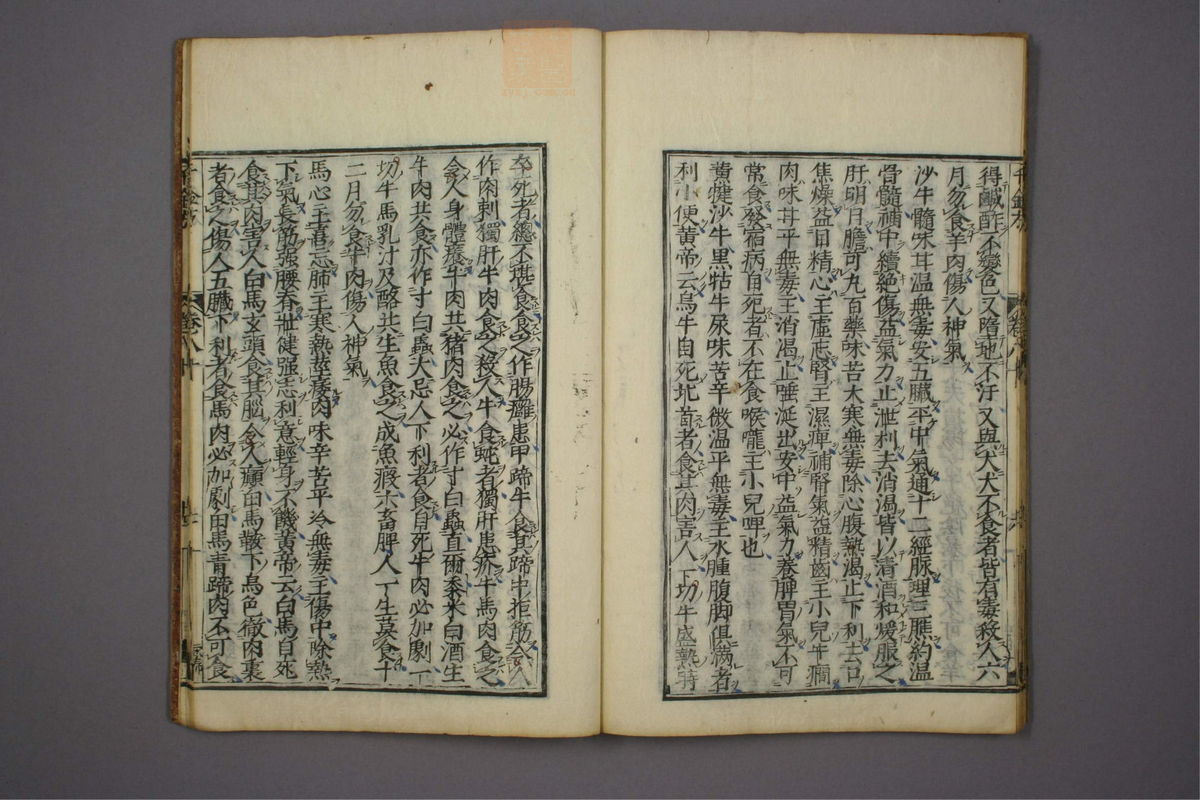 得鹹酢不變色又墮地不汙又與犬犬不食者皆有毒殺人六
月勿食羊肉傷人神氣
沙牛髓味甘溫無毒安五臟平中氣通十二經脉理三膲約溫
骨髓補中續絕傷益氣力止泄利去消渴皆以清酒和煖服之
肝明目膽可丸百藥味苦大寒無毒除心腹熱渴止下利去口
焦燥益目精心主虛忘腎主濕痺補腎氣益精齒主小兒牛癎
肉味甘平無毒主消渴止唾涎出安中益氣力養脾胃氣不可
常食發宿病自死者不任食喉嚨主小兒啤也
黃犍沙牛黑牯牛尿味苦辛微溫平無毒主水腫腹脚俱滿者
利小便黃帝云烏牛自死北首者食其肉害人一切牛盛熱時
卒死者總不堪食食之作腸癰患甲蹄牛食其蹄中拒筋令人
作肉刺獨肝牛肉食之殺人牛食蛇者獨肝患疥牛馬肉食之
令人身體癢牛肉共猪肉食之必作寸白蟲直爾黍米白酒生
牛肉共食亦作寸白蟲大忌人下利者食自死牛肉必加劇一
切牛馬乳汁及酪共生魚食之成魚瘕六畜脾人一生莫食十
二月勿食牛肉傷人神氣
馬心主喜忘肺主寒熱莖痿肉味辛苦平冷無毒主傷中除熱
下氣長筋強腰脊壯健強志利意輕身不饑黃帝云白馬自死
食其肉害人白馬玄頭食其腦令人癲白馬鞍下烏色徹肉裏
者食之傷人五臟下利者食馬肉必加劇白馬青蹄肉不可食
千金方
卷八十